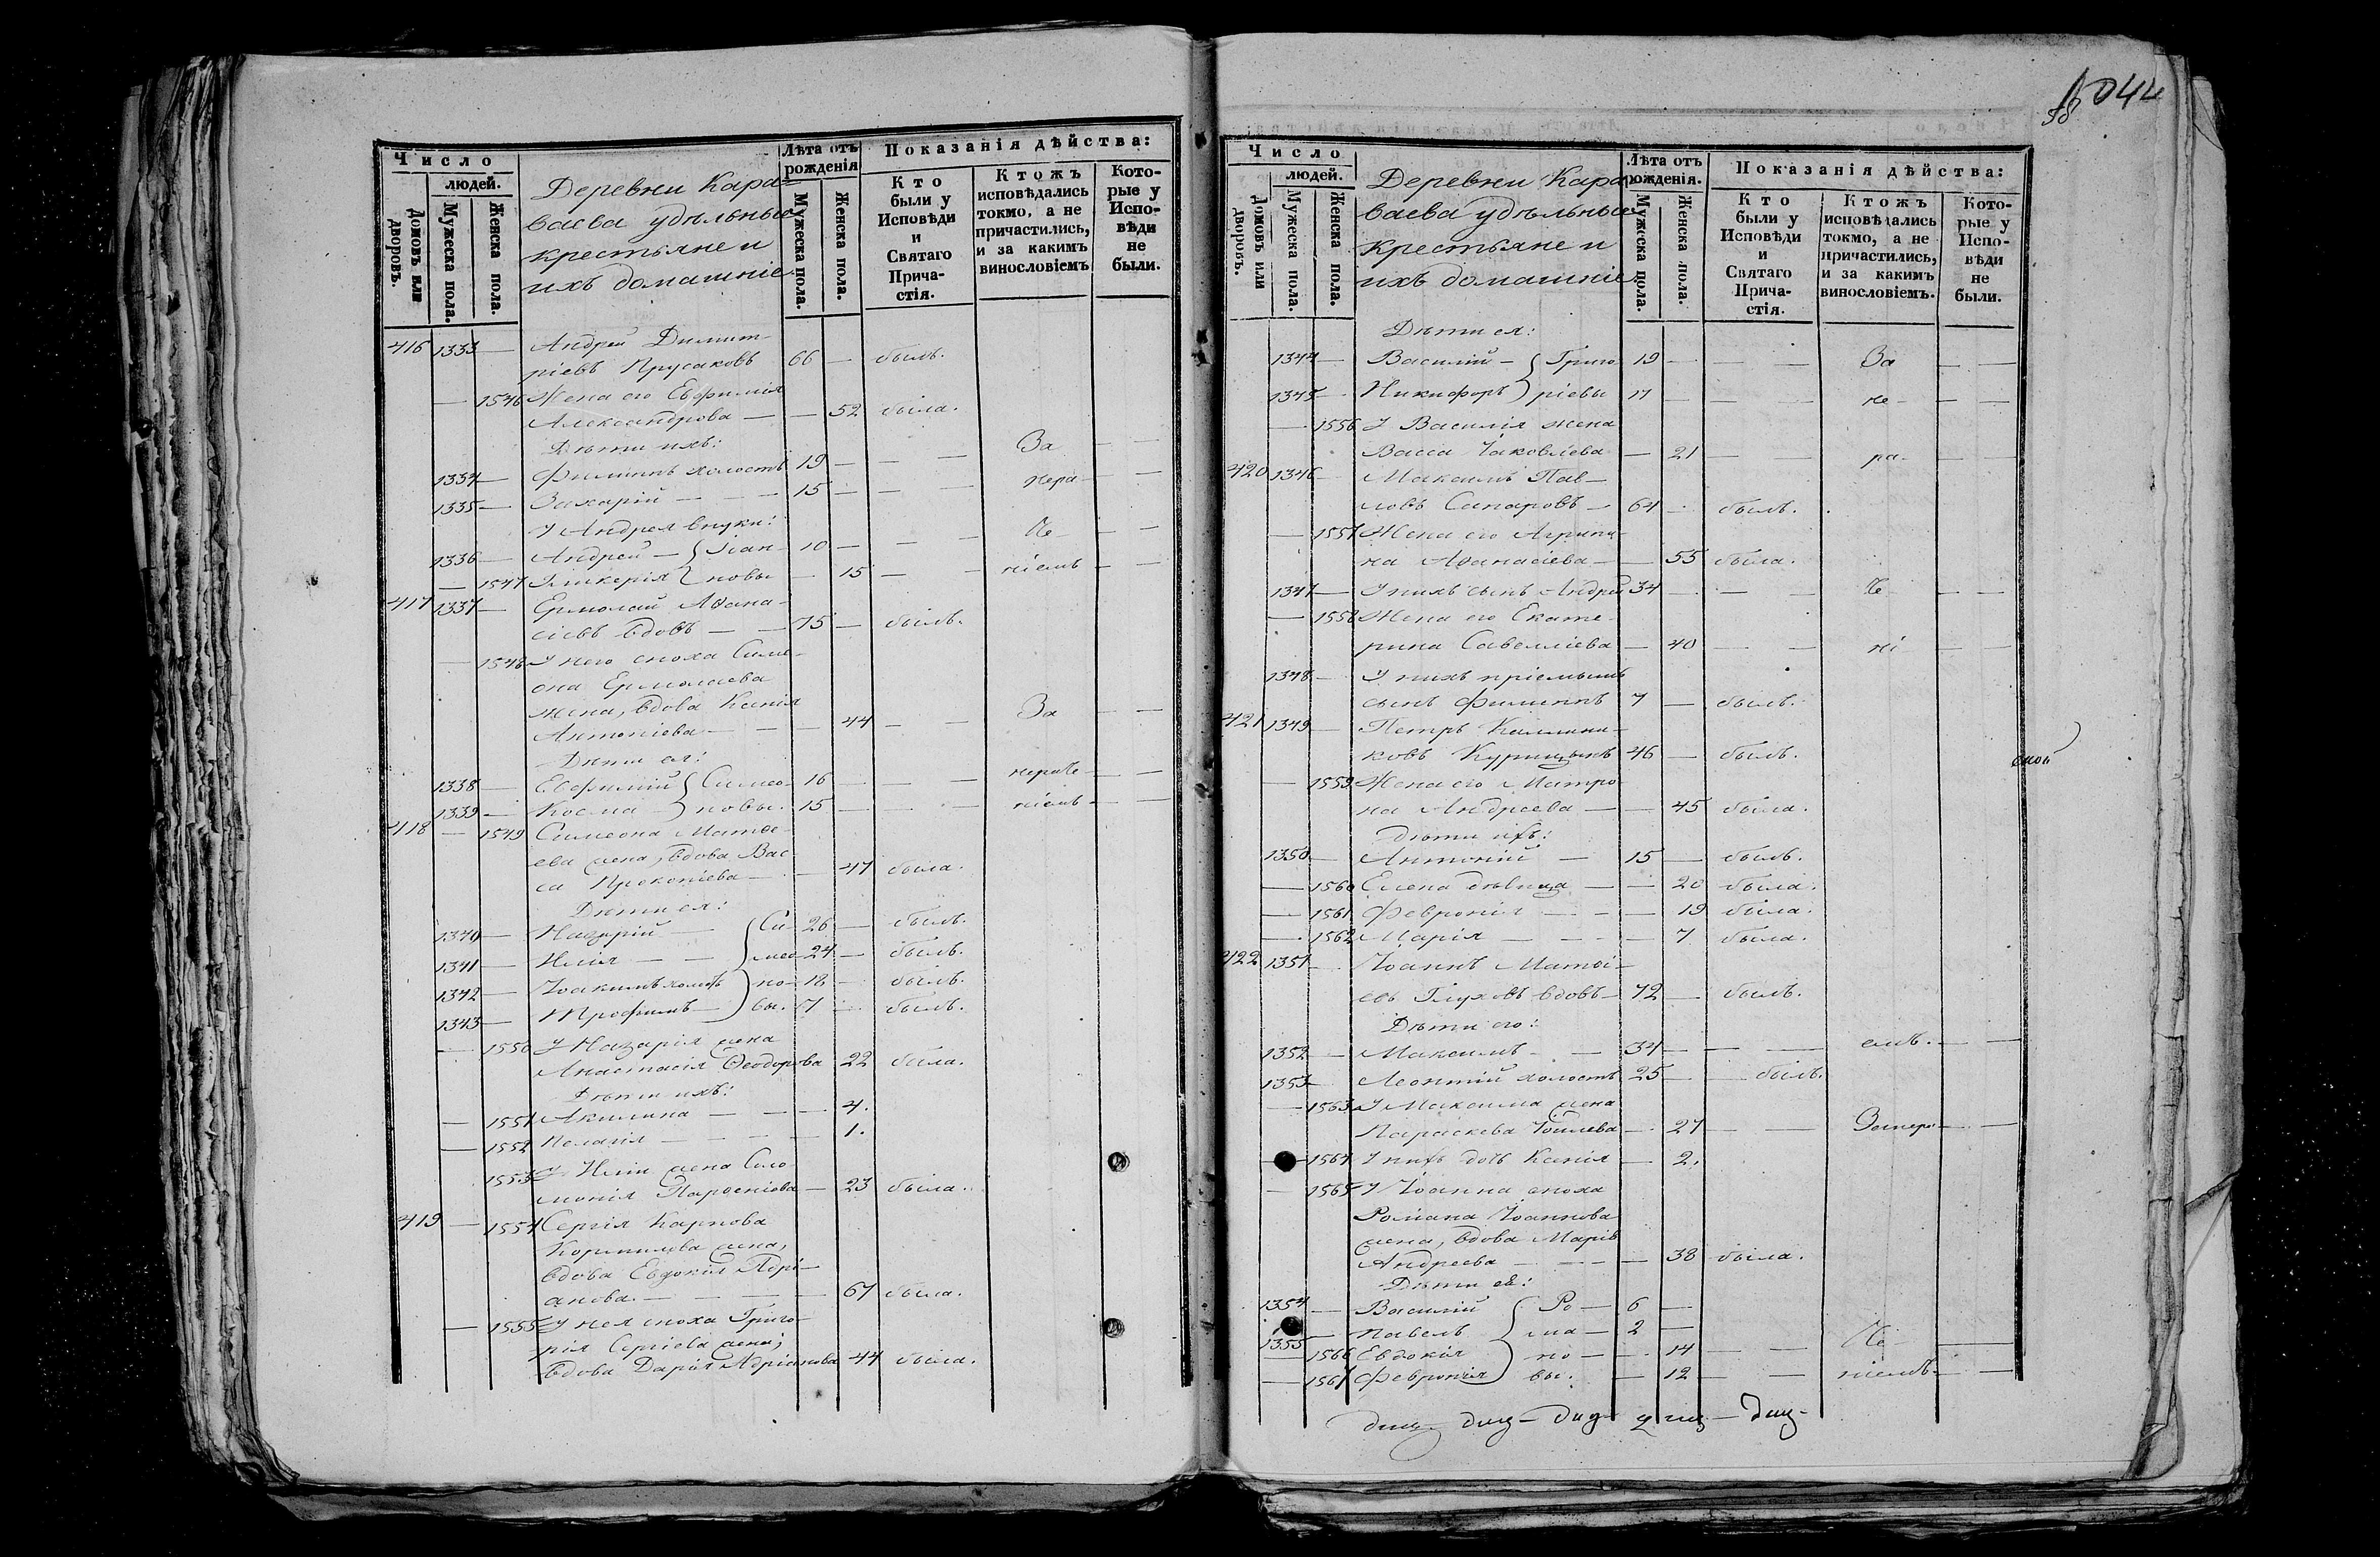 Число
людей.
Домовъ или дворовъ.
Мужеска пола.
Женска пола.
Деревни Кара-
ваева удѣльные
крестьяне и
ихъ домашніе
Лѣта отъ рожденія
Мужеска пола.
Женска пола.
Показанія дѣйства:
Кто были у Исповѣди и Святаго Причастія.
Ктожъ исповѣдались токмо, а не причастились, и за какимъ винословіемъ
Которые у Исповѣди не были.
416 1333 — Андрей Димит-
ріевъ Прусаковъ 66 — былъ.
— 1546 Жена его Евфимія
Александрова — — 52 была.
Дѣти ихъ: За — —
1334 — Филиппъ холостъ 19 — — —
1335 — Захарій — — — 15 — — — нера — —
У Андрея внуки:
1336 — Андрей — Іоан- 10 — — — че — —
— 1547 Гликерія новы — 15 — — ніемъ — —
417 1337 — Ермолай Аѳана-
сіевъ вдовъ — — 75 — былъ.
— 1548 У него сноха Симе-
она Ермолаева
жена, вдова Ксенія
Антоніева — — — 44 — — За — —
Дѣти ея:
1338 — Евфимій Симео- 16 — — нераче — —
1339 — Косма — новы. 15 — — — ніемъ — —
418 — 1549 Симеона Матѳе-
ева жена, вдова Вас-
са Прокопіева — — 47 была.
Дѣти ея:
1340 — Назарій — Си- 26 — былъ.
1341 — Илія — — мео- 24 — былъ.
1342 — Іоакимъ холостъ но- 18 — былъ.
1343 — Трофимъ — вы. 17 — былъ.
— 1550 У Назарія жена
Анастасія Ѳеодорова 22 была.
Дѣти ихъ:
— 1551 Акилина — — — 4.
— 1552 Пелагія — — — — 1.
1553 У Иліи жена Соло-
монія Парѳеніова — 23 была.
419 — 1554 Сергія Карпова
Кормилова жена,
вдова Евдокія Адрі-
анова. — — — — 67 была.
— 1555 У нея сноха Григо-
рія Сергіева жена,
вдова Дарія Адріанова 44 была.
044
Число
людей.
Домовъ или дворовъ.
Мужеска пола.
Женска пола.
Деревни Кара-
ваева удѣльные
крестьяне и
ихъ домашніе
Лѣта отъ рожденія.
Мужеска пола.
Женска пола.
Показанія дѣйства:
Кто были у Исповѣди и Святаго Причастія.
Ктожъ исповѣдались токмо, а не причастились, и за какимъ винословіемъ.
Которые у Исповѣди не были.
Дѣти ея:
1344 — Василій — Григо- 19 — — — За — —
1345 — Никифоръ ріевы 17 — — — не — —
— 1556 У Василія жена
Васса Іаковлева — 21 — — ра — —
420 1346 — Максимъ Пав-
ловъ Сапаровъ — 64 — былъ.
— 1557 Жена его Агрипи-
на Аѳанасіева — — 55 была.
1347 — У нихъ сынъ Андрей 34 — — — че — —
— 1558 Жена его Екате-
рина Савелліева — 40 — — ні — —
1348 — У нихъ пріемышъ
сынъ Филиппъ 7 — былъ.
421 1349 — Петръ Каллини-
ковъ Курицынъ 46 — былъ.
— 1559 Жена его Матро-
на Андреева — — 45 была.
Дѣти ихъ:
1350 — Антоній — 15 — былъ.
— 1560 Елена дѣвица — — 20 была.
— 1561 Февронія — — — 19 была.
— 1562 Марія — — — — 7 была.
422 1351 — Іоаннъ Матѳі-
евъ Глуховъ вдовъ — 72 — былъ.
Дѣти его:
1352 — Максимъ — — 34 — — — емъ. — —
1353 — Леонтій холостъ 25 — — былъ.
— 1563 У Максима жена
Параскева Іоилева — 27 — — Занера — —
— 1564 У нихъ дочь Ксенія — 2.
— 1565 У Іоанна сноха
Романа Іоаннова
жена, вдова Марія
Андреева — — — — 38 была.
Дѣти ея:
1354 — Василій Ро — 6 —
1355 — Павелъ ма — 2 —
— 1566 Евдокія но — — 14 — — че —
— 1567 Февронія вы. — 12 — — ніемъ — —